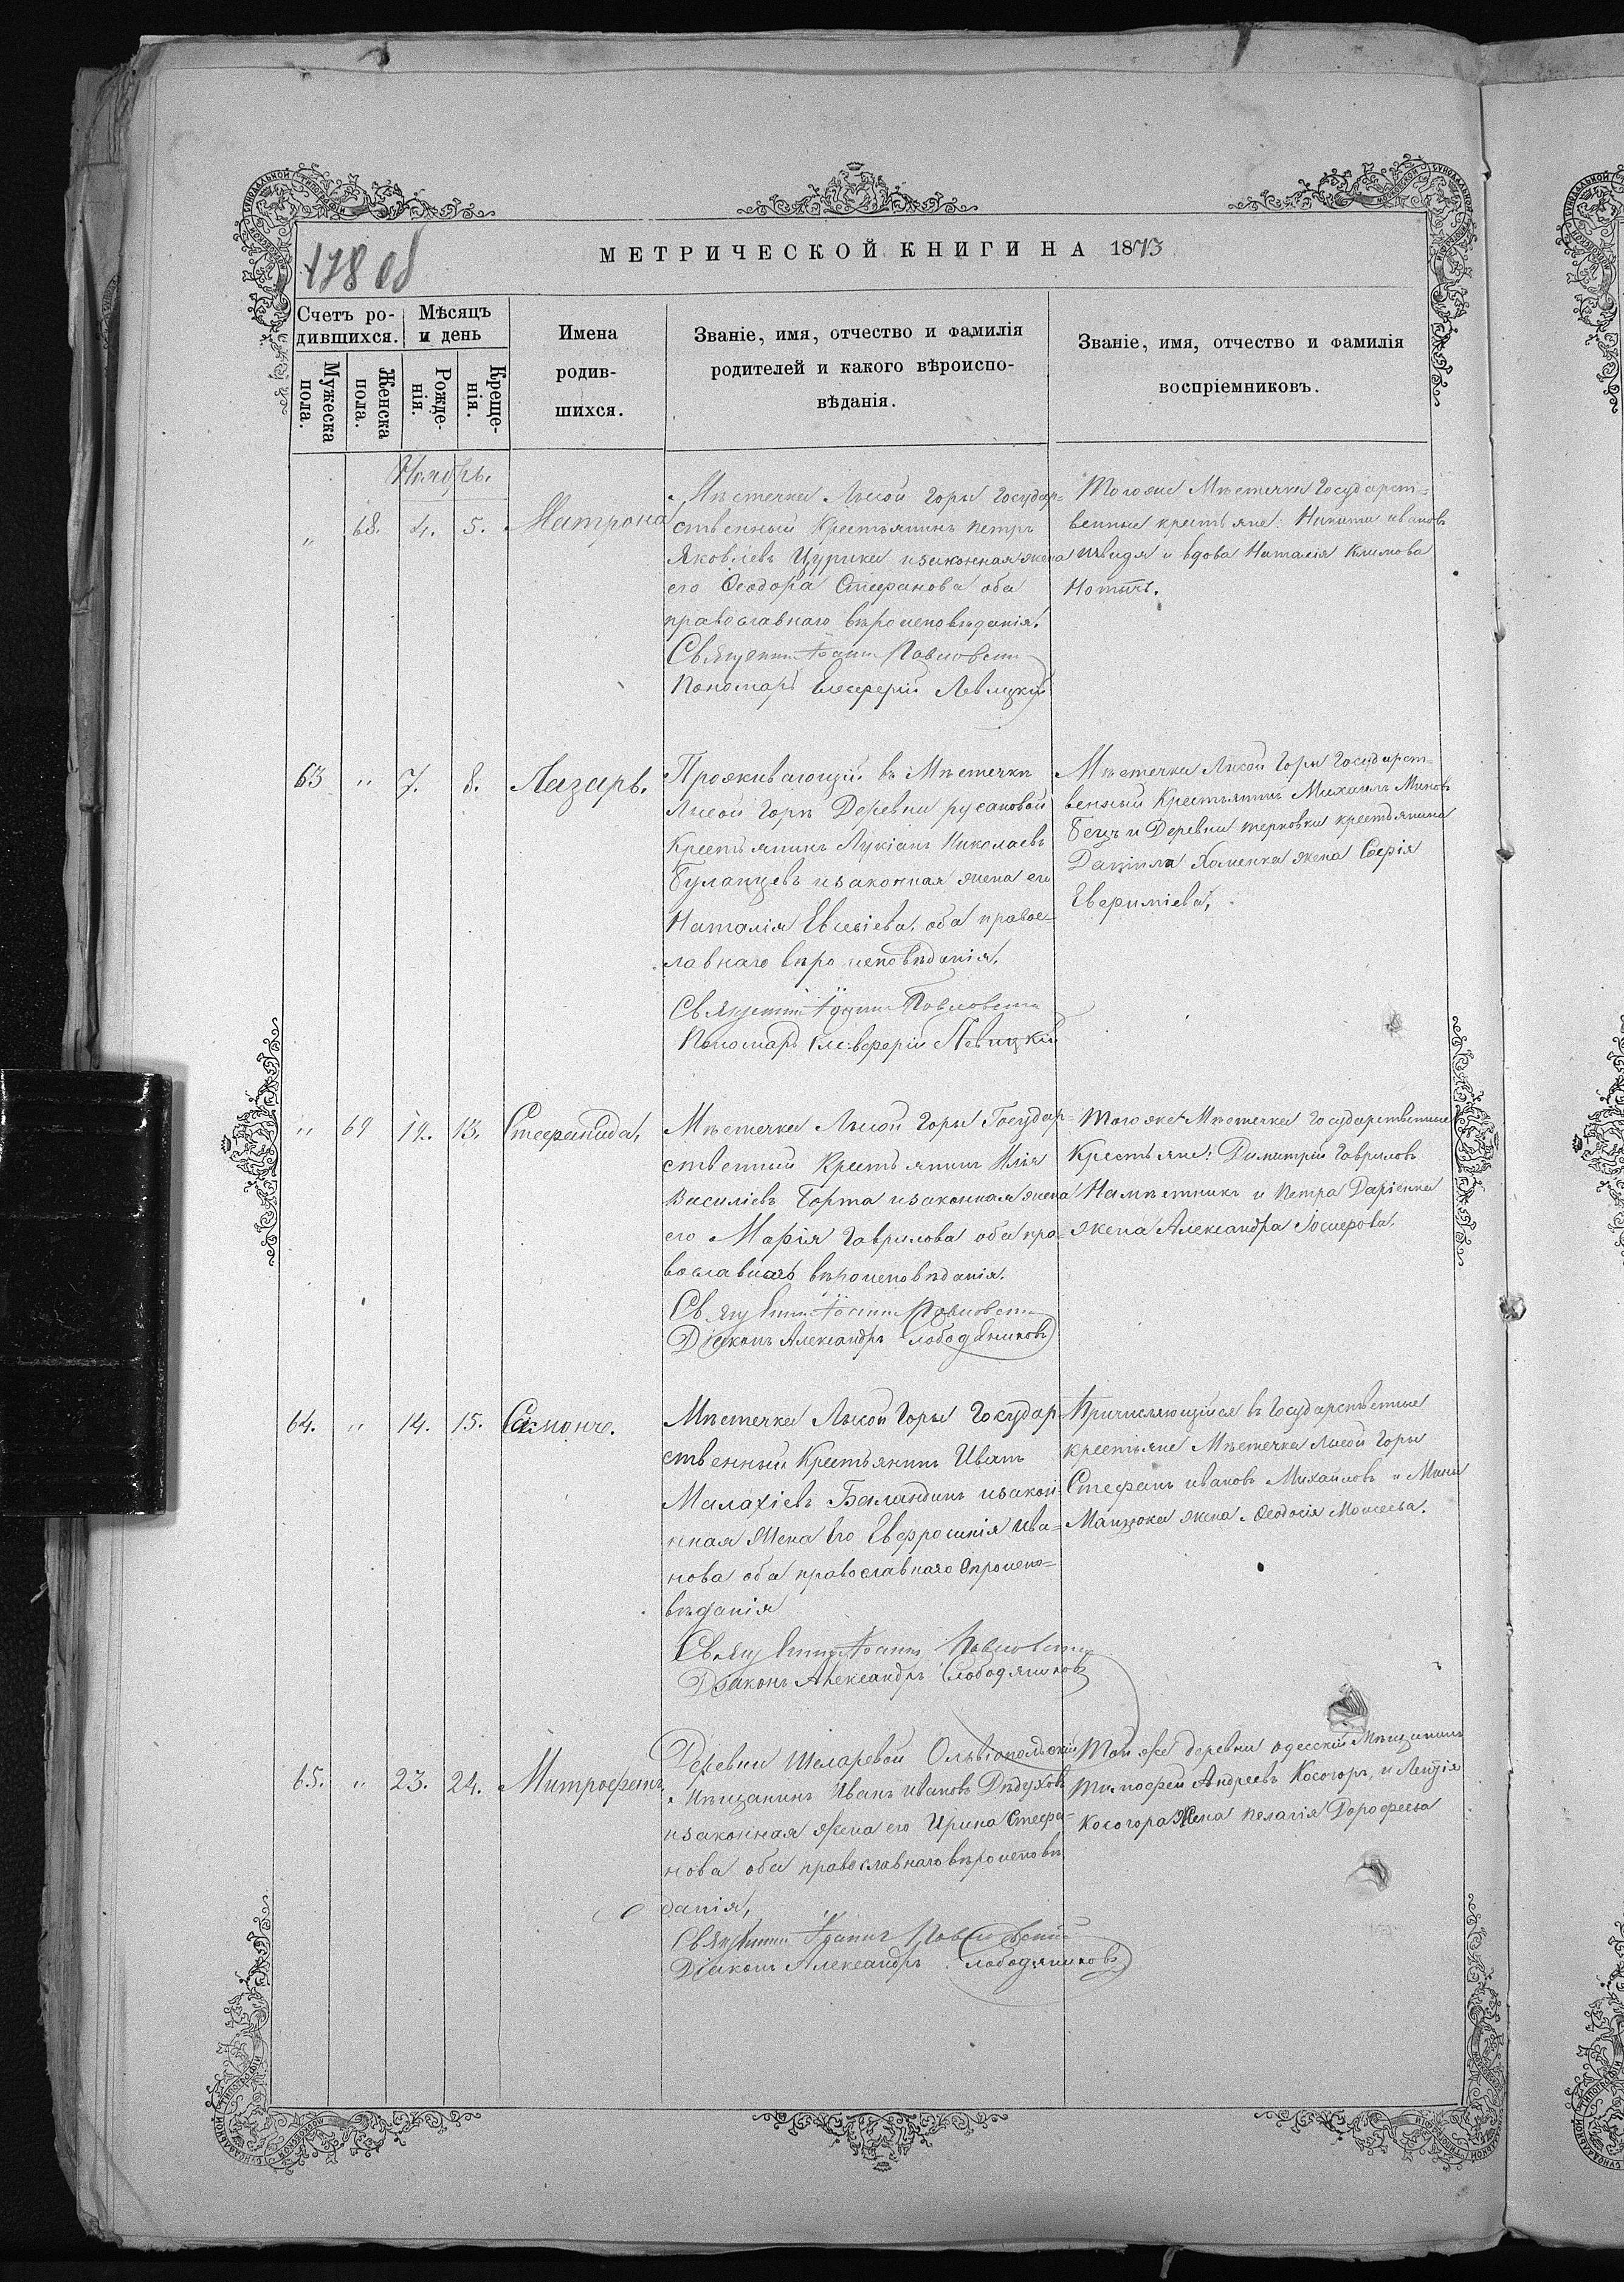 178 об
МЕТРИЧЕСКОЙ КНИГИ НА 1873
Счетъ ро-
дившихся.
Мѣсяцъ
и день
Мужеска
пола.
Женска
пола.
Рожде-
нія.
Креще-
нія.
Имена
родив-
шихся.
Званіе, имя, отчество и фамилія
родителей и какого вѣроиспо-
вѣданія.
Званіе, имя, отчество и фамилія
воспріемниковъ.
Ноябрь.
" 68. 4. 5. Матрона
Мѣстечка Лысой Горы Государ=
ственный Крестьянинъ Петръ
Яковлевъ Цурика изаконная жена
его Ѳеодора Стефанова оба
православнаго вѣроисповѣданія.
Священникъ Іоаннъ Павловскій
Пономарь Елевферій Левицкій
Тогоже Мѣстечка Государст=
венные крестьяне: Никита ивановъ
швидя и вдова Наталія Климова
63 " 7. 8. Лазарь.
Проживающій въ Мѣстечкѣ
Лысой Горѣ Деревни русановой
Крестьянинъ Лукіанъ Николаевъ
Буланцевъ изаконная жена его
Наталія Евсевіева. оба правос=
лавнаго вѣроисповѣданія.
Священникъ Іоаннъ Павловскій
Пономарь Елевферій Левицкій
Мѣстечка Лысой Горы Государст=
венный Крестьянинъ Михаилъ Миновъ
Бецъ и Деревни терновки крестьянина
Даніила Хоменка жена Софія
Евфиміева,
" 69 12. 13. Стефанида,
Мѣстечка Лысой Горы Государ=
ственный Крестьянинъ Илія
Василіевъ Борта изаконная жена
его Марія Гаврилова оба пра=
вославнаго вѣроисповѣданія.
Священникъ Іоаннъ Павловскій
Діаконъ Александръ Слободяниковъ
Тогоже Мѣстечка Государственные
Крестьяне: Димитрій Гавриловъ
Намѣстникъ и Петра Даріенка
жена Александра Іосифова.
64. " 14. 15. Самонъ.
Мѣстечка Лысой Горы Государ
ственный Крестьянинъ Иванъ
Малахіевъ Баландинъ изакон=
ная жена Его Евфросинія Ива=
нова оба православнаго вѣроиспо=
вѣданія
Священникъ Іоаннъ Павловскій
Діаконъ Александръ Слободяниковъ
Причисляющійся въ Государственные
крестьяне Мѣстечка Лысой Горы
Стефанъ ивановъ Михайловъ и Мины
жена Ѳеодосія Моисеева.
65. " 23. 24. Митрофанъ,
Деревни Шеларевой Ольвіопольскій
Мѣщанинъ Иванъ ивановъ Дѣдуховъ
изаконная жена его Ирина Стефа=
нова оба православнаго вѣроисповѣ
данія,
Священникъ Іоаннъ Павловскій
Діаконъ Александръ Слободяниковъ
Той же деревни одесскій Мѣщанинъ
Тимофей Андреевъ Косогоръ, и
Косогора Жена Пелагія Дорофеева